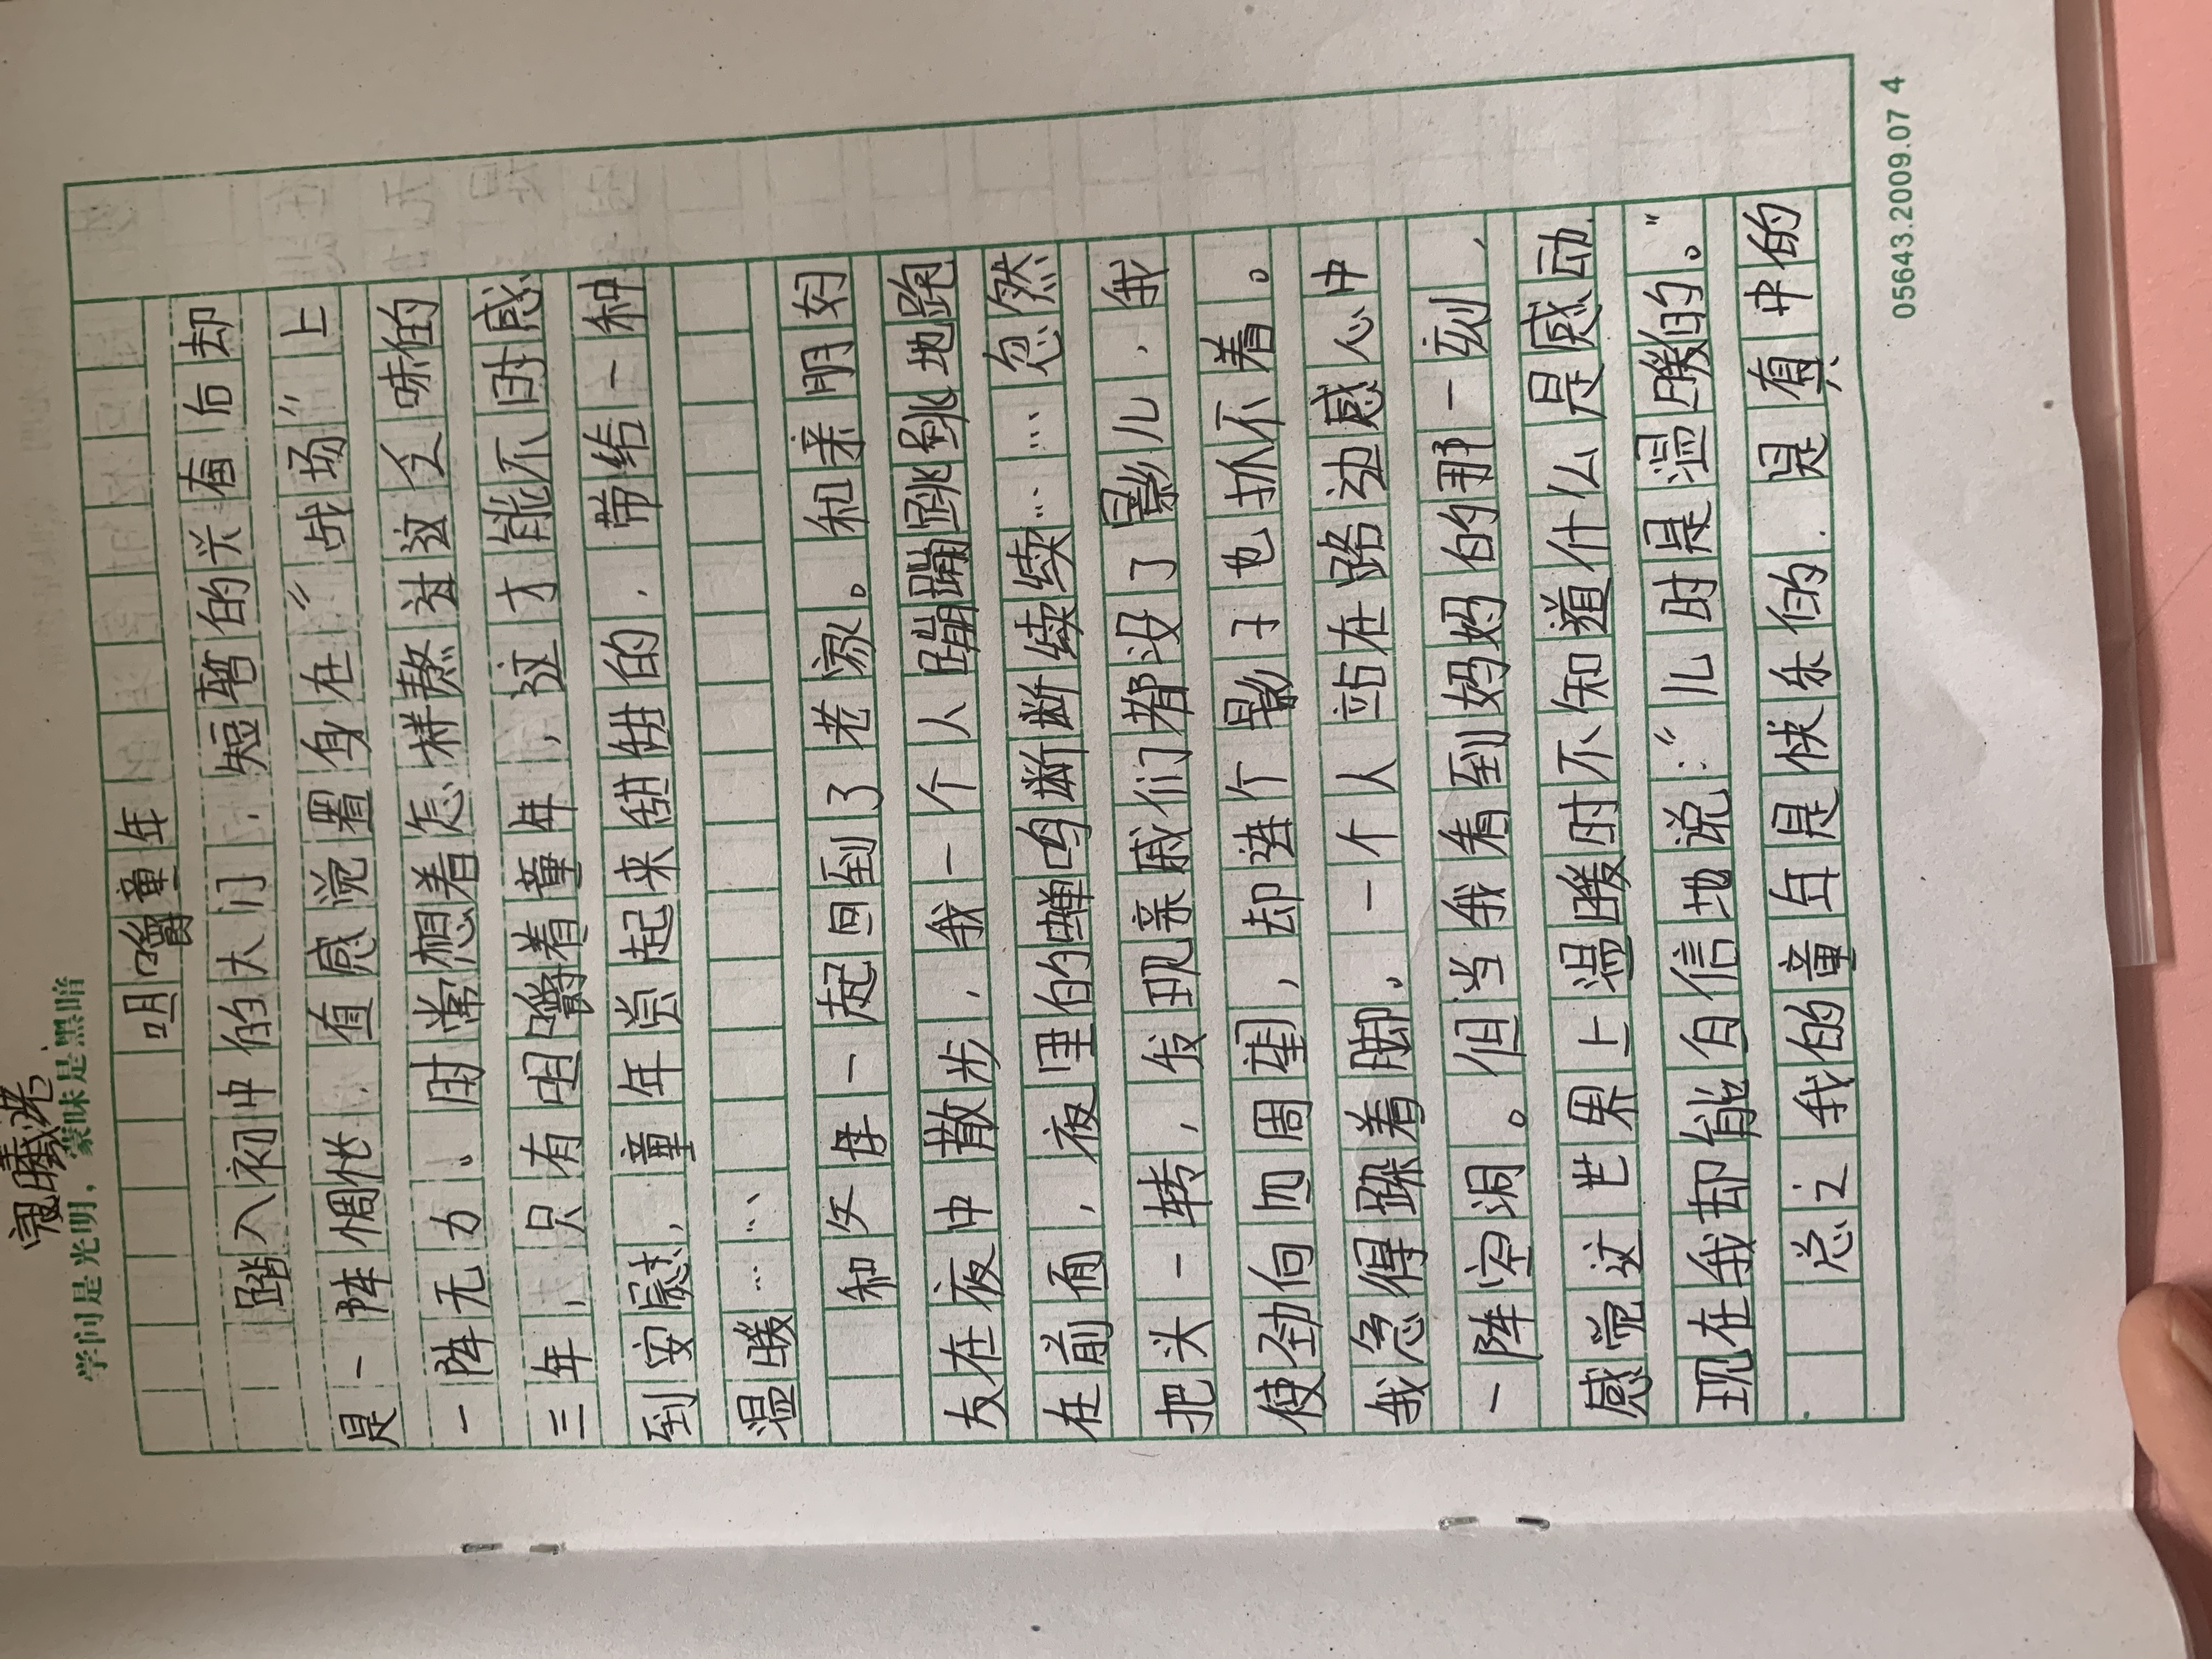 寇曦港
学问是光明，蒙昧是黑暗
咀嚼童年
踏入初中的大门，短暂的兴奋后却
是一阵惆怅，直感觉置身在“战场”上
一阵无力。时常想着怎样熬过这乏味的
三年，只有咀嚼着童年，这才能不时感
到安慰，童年尝起来甜甜的，带给一种
温暖……
和父母一起回到了老家。和亲朋好
友在夜中散步，我一个人蹦蹦跳跳地跑
在前面，夜里的蝉鸣断断续续……忽然
把头一转，发现亲戚们都没了影儿，我
使劲向四周望，却连个影子也抓不着。
我急得跺着脚，一个人站在路边感心中
一阵空洞。但当我看到妈妈的那一刻，
感觉这世界上温暖时不知道什么是感动
现在我却能自信地说：“儿时是温暖的。”
总之我的童年是快乐的，是真中的
05643.2009.07 4